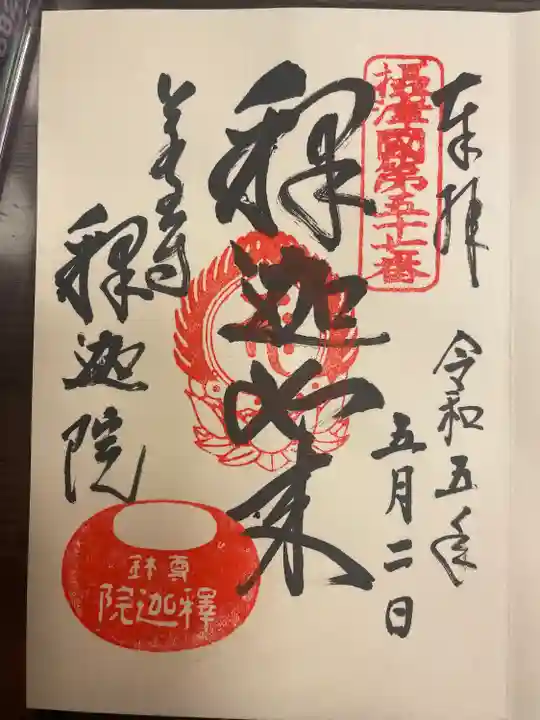 奉拝
摂津國第五十七番
令和五年
五月二日
釈迦如来
若王寺
釈迦院
尊鉢
釋迦院